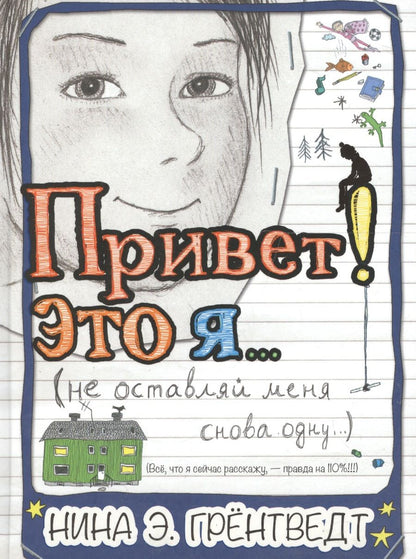 Привет!
это я...
(не оставляй меня
снова одну...)
(Всё, что я сейчас расскажу, — правда на 110%!!!)
НИНА Э. ГРЁНТВЕДТ